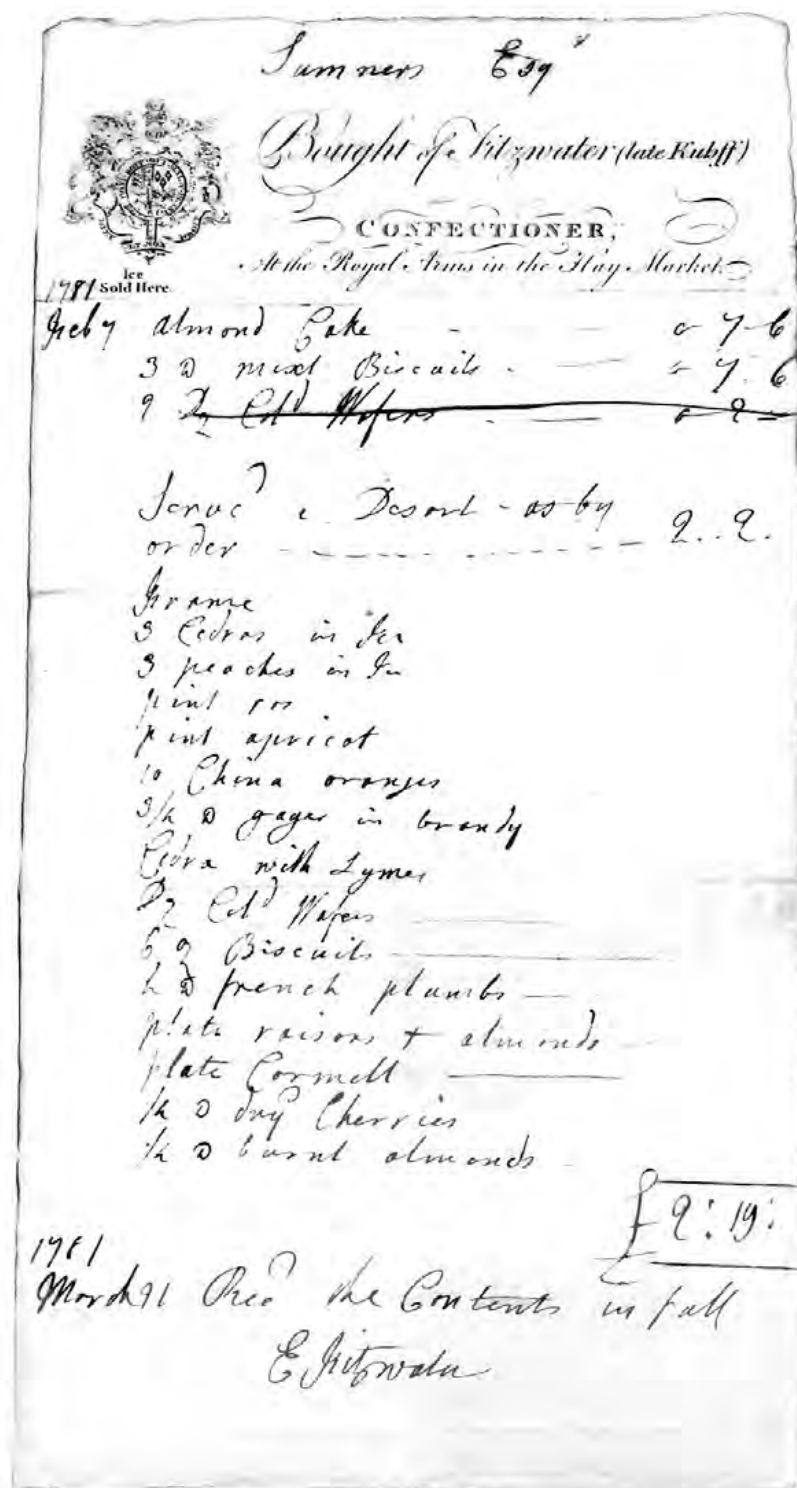 Sumners Esqr
Bought of Fitzwater (late Kuhff)
CONFECTIONER,
At the Royal Arms in the Hay Market.
Ice
Sold Here.
1781
Feb 7 Almond Cake - - 0 7-6
3 D mixt Biscuits - - 7. 6
2 Dz Cold Wafers - - 0 2 -
Servd a Desart - as by
order - - - - - - - - 2..2.
Frame
3 Cedras in Ice
3 peaches in Ice
pint
pint apricot
10 China oranges
3/4 D gages in brandy
Cedra with Lymes
Dz Cold Wafers
6 Biscuits
french plumbs
plate raisons + almonds
plate Cormell
dry Cherries
burnt almonds
£2: 19:
1781
March 21 Recd the Contents in full
E Fitzwater